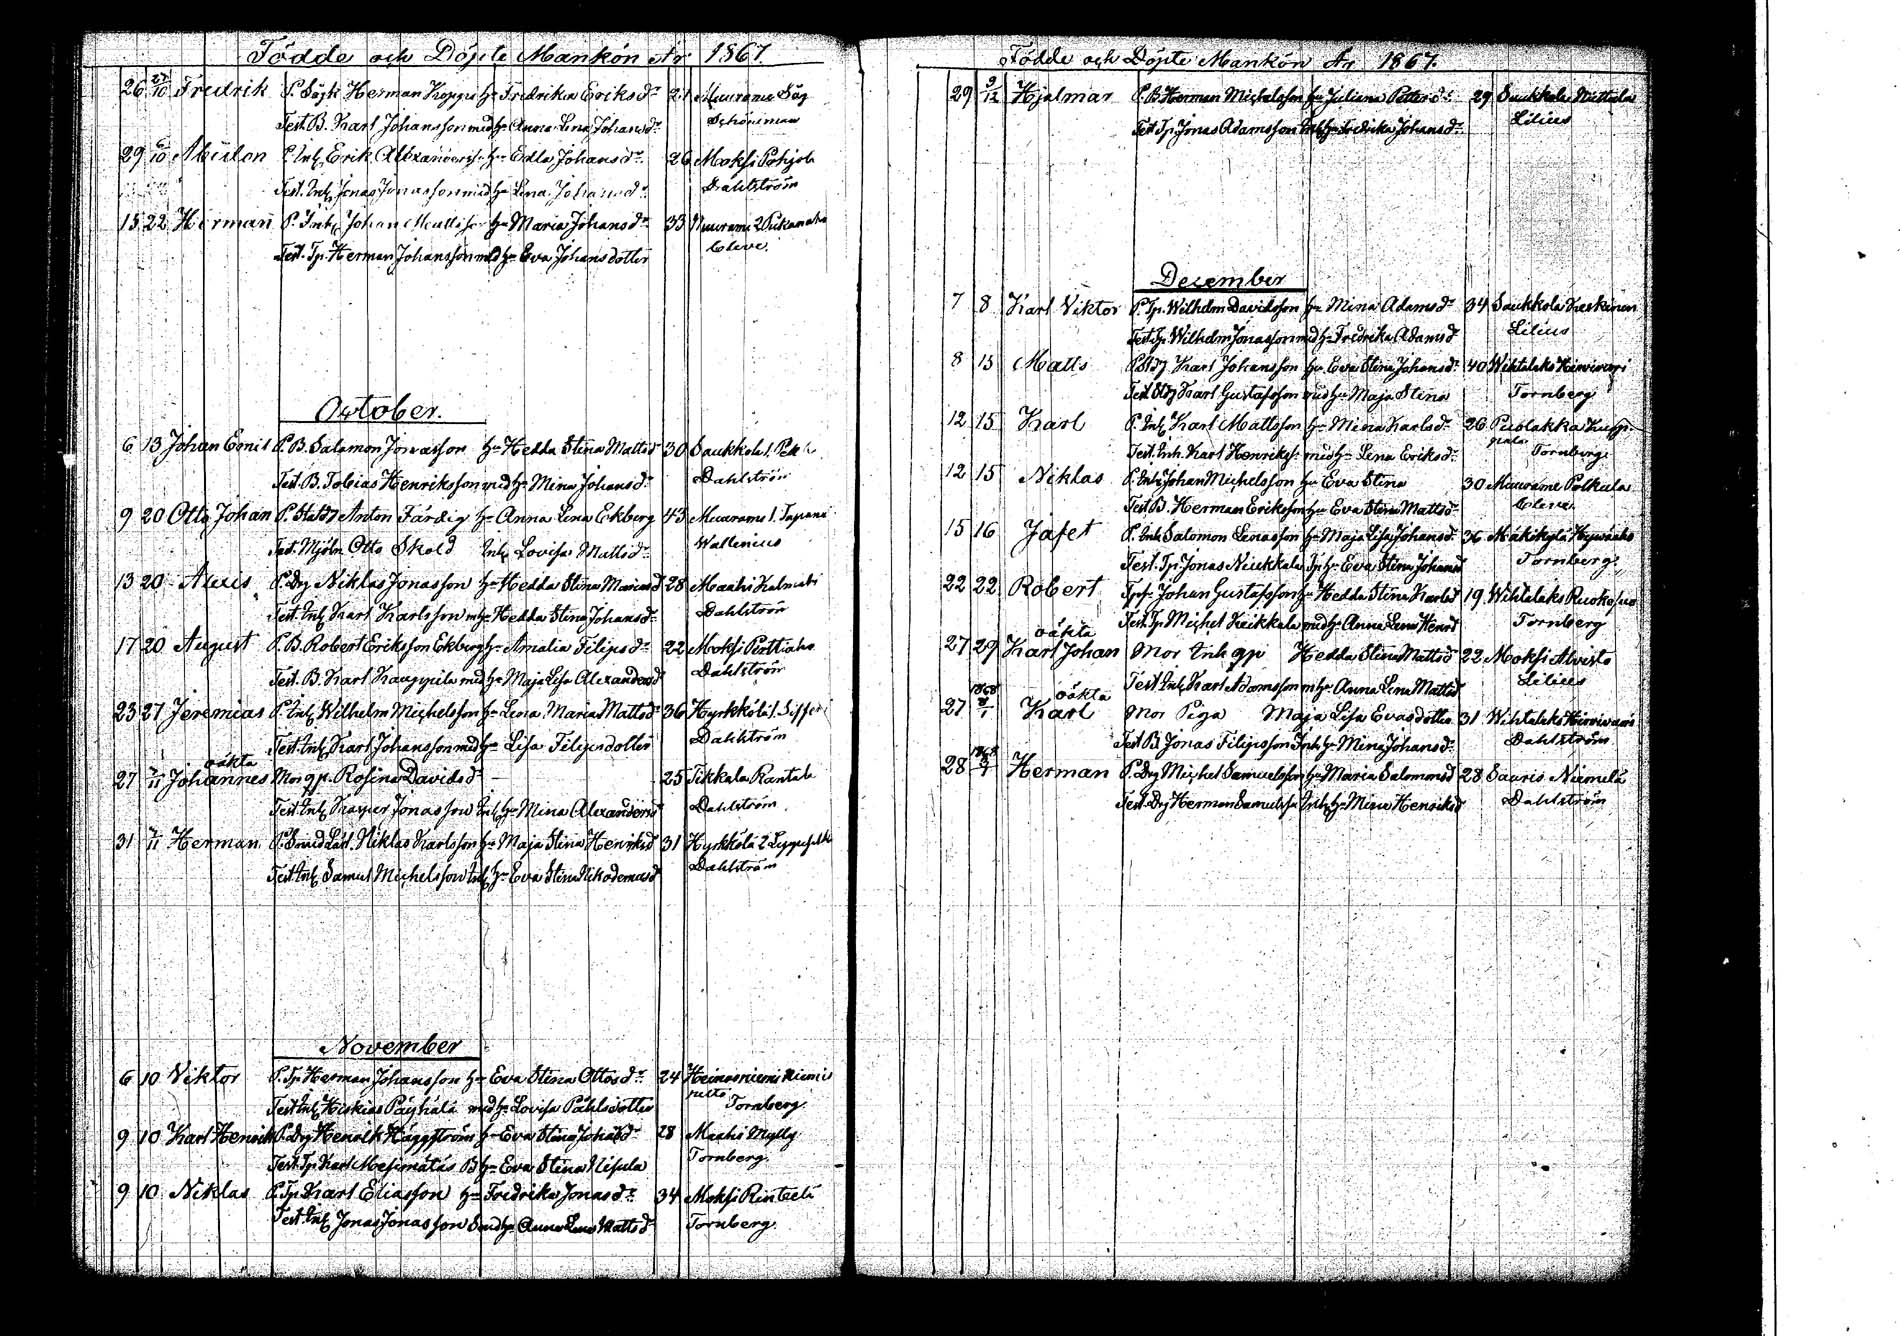 Födde och Döpte Mankön År 1867.
26 27/10 Fredrik P. Sågk Herman Koppe h:u Fredrika Eriksd:r 24 Muurame Såg
Test. B. Karl Johansson med h:u Anna Lena Johansd:r Schöneman
29 6/10 P. Inh Erik h:u Edla Johansd:r 26 Moksi Pohjola
Test. Inh Jonas Jonasson med h:u Lena Johansd:r Dahlström
15 22 Herman P. Inh Johan Mattsson h:u Maria Johansd:r 33 Muurame 2
Test. Tp. Herman Johansson med h:u Eva Johansdotter Cleve.
October.
6 13 Johan Emil P. B. Salomon Jonasson h:u Hedda Stina Mattsd 30 Saukkola 1.
Test. B. Tobias Henriksson med h:u Mina Johansd:r Dahlström
9 20 Otto Johan P. Statdr Anton Färdig h:u Anna Lena Ekberg 43 Muurame 1. Tapani
Test. Mjöln Otto Sköld Inh Lovisa Mattsd:r Wallenius
13 20 Alexis P. Drg Niklas Jonasson h:u Hedda Stina Mariasd 28 Maahi Kalmari
Test. Inh Karl Karlsson m h:u Hedda Stina Johansd:r Dahlström
17 20 August P. B. Robert Eriksson Ekberg h:u Amalia Filipsd:r 22 Moksi Perttiaho
Test. B. Karl Kauppila med h:u Maja Lisa Alexandersd Dahlström
23 27 Jeremias P. Inh Wilhelm Michelsson h:u Lena Maria Mattsd:r 36 Hyrkkölä 1.
Test. Inh Karl Johansson med h:u Lisa Filipsdotter Dahlström
oäkta
27 /11 Johannes Mor gp. Rosina Davidsd:r 25 Tikkala Rantala
Test. Inh Kasper Jonasson Inh h:u Mina Alexandersd Dahlström
31 /11 Herman P. Smed Lärl. Niklas Karlsson h:u Maja Stina Henriksd 31 Hyrkkölä 2
Test. Inh Samuel Michelsson Inh h:u Eva Stina Nikodemusd Dahlström
November
6 10 Viktor P. Tp Herman Johansson h:u Eva Stina Ottosd:r 24 Heinosniemi Niemi
Test. Inh Hiskias Päyhälä med h:u Lovisa Påhlsdotter Tornberg
9 10 Karl Henrik P. Drg Henrik Häggström h:u Eva Stina Johansd:r 28 Maahi Mylly
Test. Tp Karl Mesimätäs B h:u Eva Stina Nisula Tornberg.
9 10 Niklas P. Tp Karl Eliasson h:u Fredrika Jonasd:r 34 Moksi Rinteelä
Test. Inh Jonas Jonasson Smed h:u Anna Lena Mattsd:r Tornberg.
Födde och Döpte Mankön År 1867.
29 9/12 Hjalmar P. B. Herman Michelsson h:u Juliana Pettersd:r 29 Saukkola Mattila
Test. Tp. Jonas Adamsson Inh h:u Fredrika Johansd:r Lilius
December
7 8 Karl Viktor P. Tp. Wilhelm Davidsson h:u Mina Adamsd:r 34 Saukkola Keskinen
Test. Tp. Wilhelm Jonasson med h:u Fredrika Adamsd Lilius
8 15 Matts P. Stdr Karl Johansson h:u Eva Stina Johansd:r 40 Wihtalaks Hirvivuori
Test. Stdr Karl Gustafsson med h:u Maja Stina Tornberg
12 15 Karl P. Inh Karl Mattsson h:u Mina Karlsd:r 26 Puolakka
Test. Inh. Karl Henrikss. med h:u Lena Eriksd:r Tornberg.
12 15 Niklas P. Inh Johan Michelsson h:u Eva Stina 30 Muurame Polkula
Test. B. Herman Eriksson h:u Eva Stina Mattsd:r Cleve.
15 16 Jafet P. Inh Salomon Enasson h:u Maja Lisa Johansd:r 36 Mäkikylä
Test. Tp. Jonas Niukkala Tp h:u Eva Stina Johansd Tornberg.
22 22 Robert Johan Gustafsson h:u Hedda Stina Karlsd 19 Wihtalaks Ruokosuo
Test. Tp Michel Keikkala med h:u Anna Lena Henrd Tornberg
oäkta
27 29 Karl Johan Mor Inh gp Hedda Stina Mattsd 22 Moksi Alvesto
Test. Inh Karl Adamsson m h:u Anna Lena Mattsd Lilius
1868 oäkta
27 /1 Karl Mor Piga Maja Lisa Evasdotter 31 Wihtalaks Hirvivuori
Test. B. Jonas Filipsson Inh h:u Mina Johansd:r Dahlström
1868
28 /1 Herman P. Drg Michel Samuelsson h:u Maria Salomonsd 28 Sauris Niemelä
Test. Drg Herman Samuelss Inh h:u Mina Henriksd Dahlström